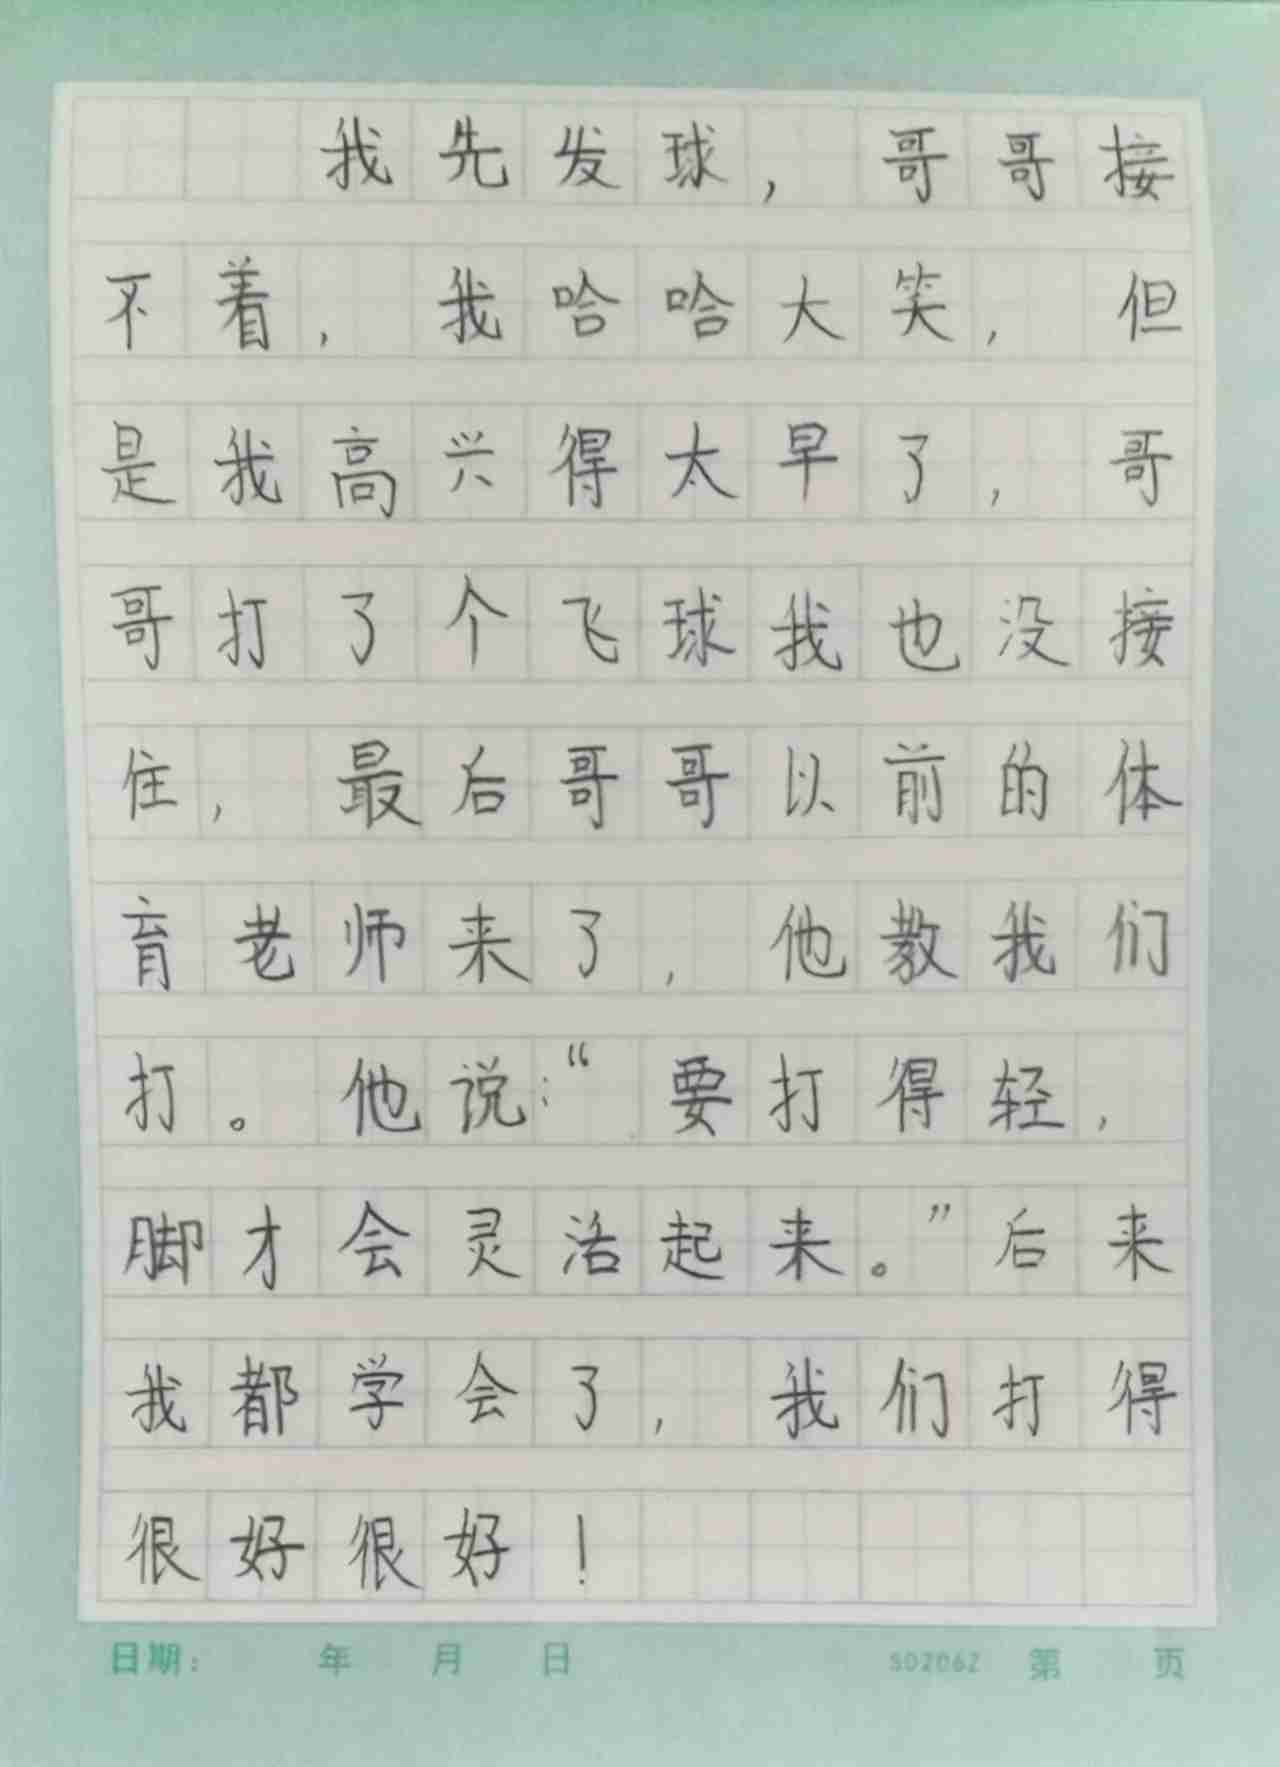 我先发球，哥哥接
不着，我哈哈大笑，但
是我高兴得太早了，哥
哥打了个飞球我也没接
住，最后哥哥以前的体
育老师来了，他教我们
打。他说：“要打得轻，
脚才会灵活起来。”后来
我都学会了，我们打得
很好很好！
日期： 年 月 日 SD206Z 第 页